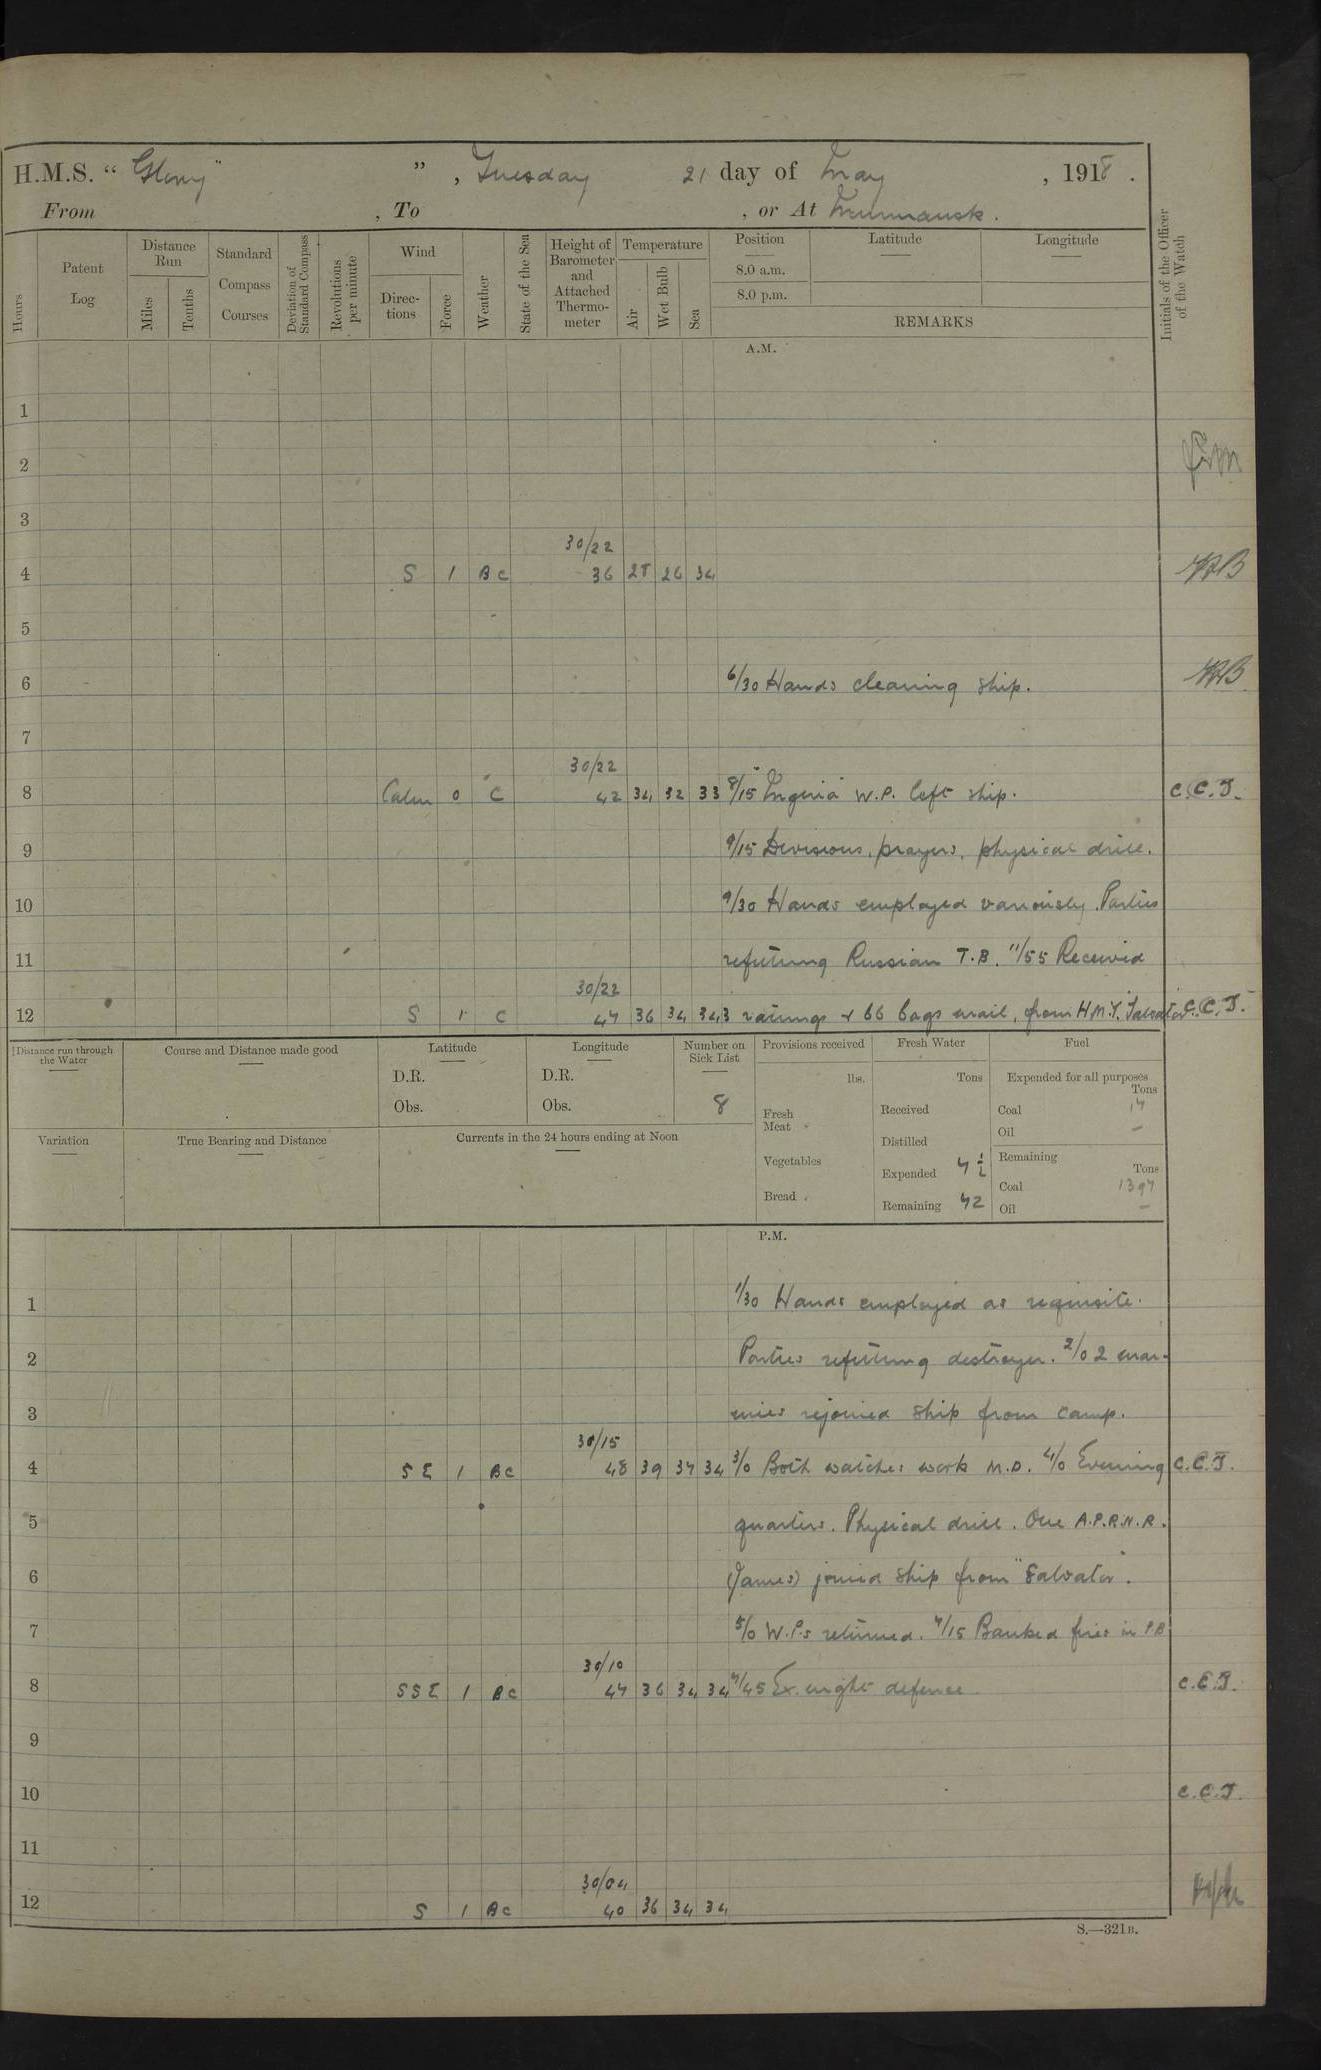 H.M.S. “ Glory ” , Tuesday 21 day of May , 1918 .
From , To , or At Murmansk .
Hours
Patent Log
Distance Run
Miles
Tenths
Standard Compass Courses
Deviation of Standard Compass
Revolutions per minute
Wind
Direc-tions
Force
Weather
State of the Sea
Height of Barometer and Attached Thermo-meter
Temperature
Air
Wet Bulb
Sea
Position
8.0 a.m.
8.0 p.m.
Latitude
Longitude
REMARKS
Initials of the Officer of the Watch
A.M.
1
2
3
30/22
4 S 1 BC 36 28 26 34
5
6 6/30 Hands cleaning ship.
7
30/22
8 Calm 0 C 42 34 32 33 8/15 W.P. left ship. C.C.J.
9 9/15 Divisions, prayers, physical drill.
10 9/30 Hands employed variously. Parties
11 refitting Russian T.B. 11/55 Received
30/22
12 S 1 C 47 36 34 34 3 ratings & 66 bags mail, from H.M.Y. Salvator. C.C.J.
Distance run through the Water
Course and Distance made good
Latitude
D.R.
Obs.
Longitude
D.R.
Obs.
Number on Sick List
8
Provisions received
lbs.
Fresh Meat
Vegetables
Bread
Fresh Water
Tons
Received
Distilled
Expended 4 1/2
Remaining 42
Fuel
Expended for all purposes
Tons
Coal 17
Oil –
Remaining
Tons
Coal 1397
Oil –
Variation
True Bearing and Distance
Currents in the 24 hours ending at Noon
P.M.
1 1/30 Hands employed as requisite.
2 Parties refitting destroyer. 2/0 2 mar-
3 ines rejoined ship from camp.
30/15
4 SE 1 BC 48 39 37 34 3/0 Both watches work M.D. 4/0 Evening C.C.J.
5 quarters. Physical drill. One A.P.R.N.R.
6 (James) joined ship from "Salvator".
7 5/0 W.P.s returned. 7/15 Banked fires in P.B
30/10
8 SSE 1 BC 47 36 34 34 7/45 Ex. night defence C.C.J.
9
10 C.C.J.
11
30/04
12 S 1 BC 40 36 34 34
S.—321B.